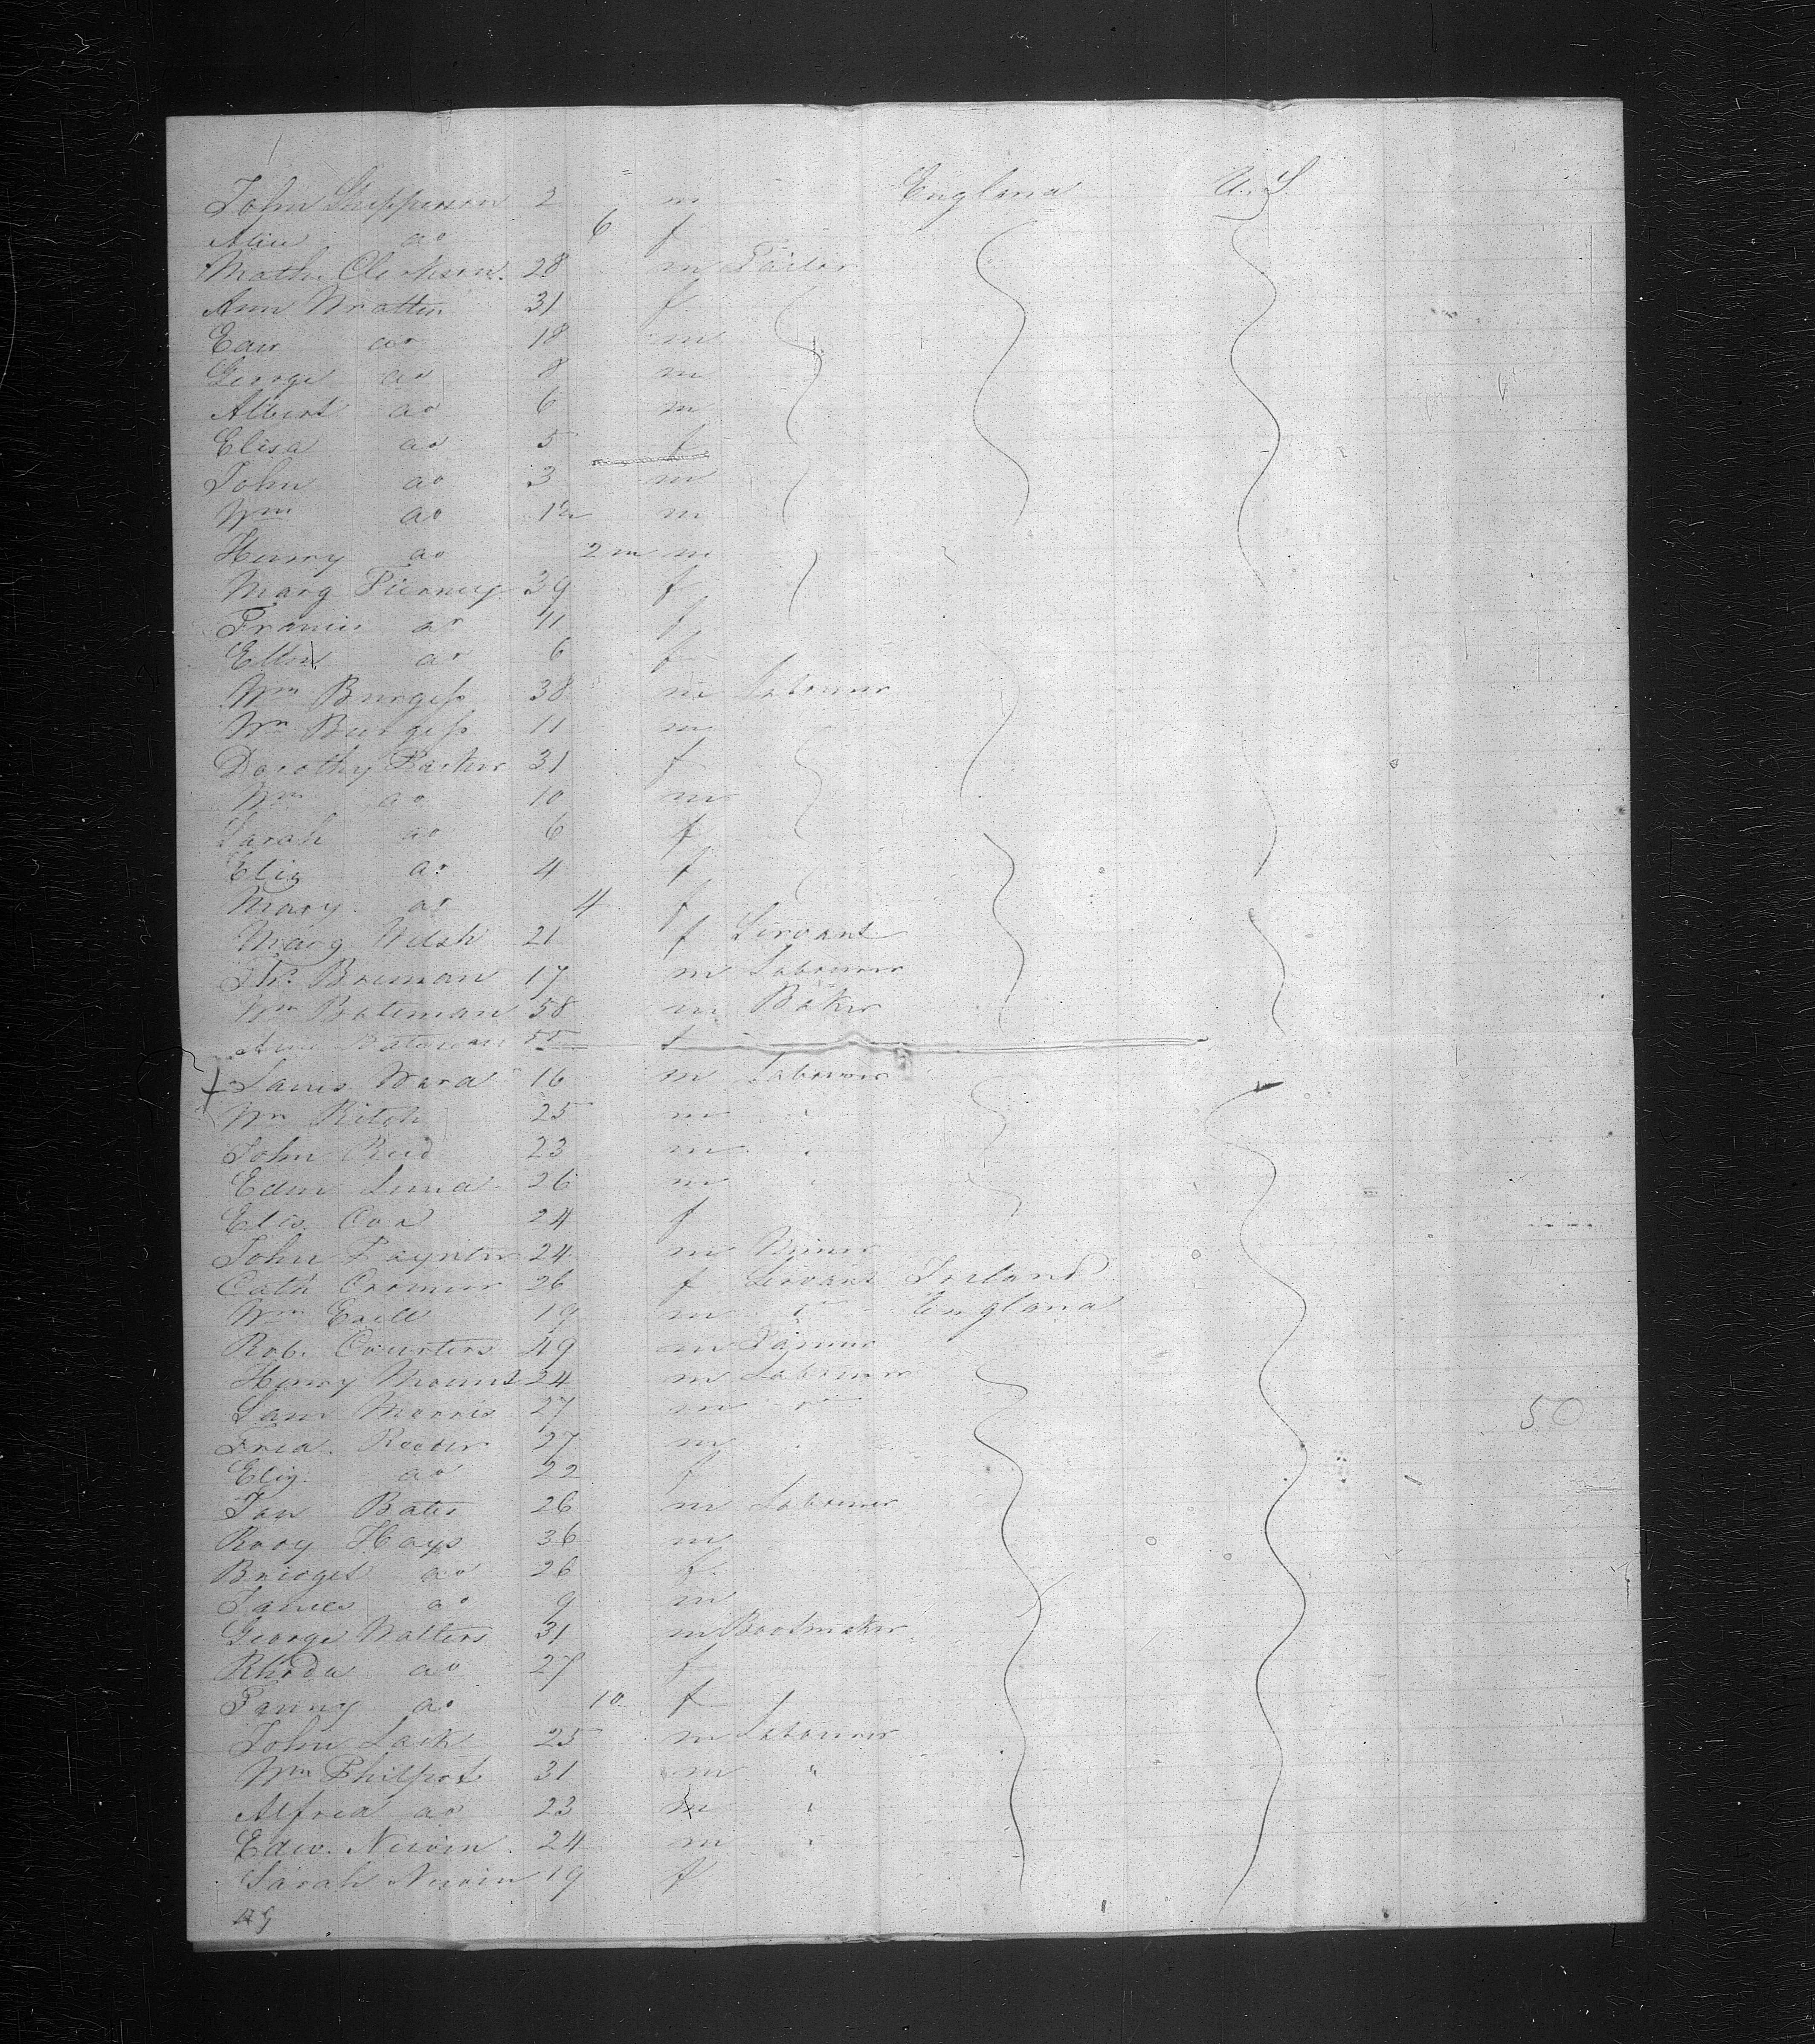 John Shepperson 2 m England U.S
Alice do 6 f
Math. Clerkson 28 m Tailor
Ann Wratten 31 f
Edw do 18 m
George do 8 m
Albert do 6 m
Elisa do 5 f
John do 3 m
Wm do 12 m
Henry do 2 m m
Marg Tierney 39 f
Francis do 11 f
Ellen do 6 f
Wm Burgess 38 m Labourer
Wm Burgess 11 m
Dorothy Barker 31 f
Wm do 10 m
Sarah do 6 f
Eliz do 4 f
Mary do 4 f
Marg Welsh 21 f Servant
Ths. Brennan 17 m Labourer
Wm Bateman 58 m Baker
Ann Bateman 55 f
James Ward 16 m Labourer
Wm Ritch 25 m "
John Reid 23 m "
Edm 26 m "
Elis. Cox 24 f
John Paynter 24 m Miner
Cath 26 f Servant Ireland
Wm 19 m do England
Rob. Courters 49 m Farmer
Henry Mount 24 m Labourer
Sam Morris 27 m do 50
Fred. Reeder 27 m "
Eliz. do 22 f
Jas Bates 26 m Labourer
Rody Hays 36 m
Bridget do 26 f
James do 9 m
George Walters 31 m Bootmaker
Rhoda do 27 f
Fanny do 10 f
John Lack 25 m Labourer
Wm Philpot 31 m "
Alfred do 23 m "
Edw. Newin 24 m "
Sarah Newin 19 f
49